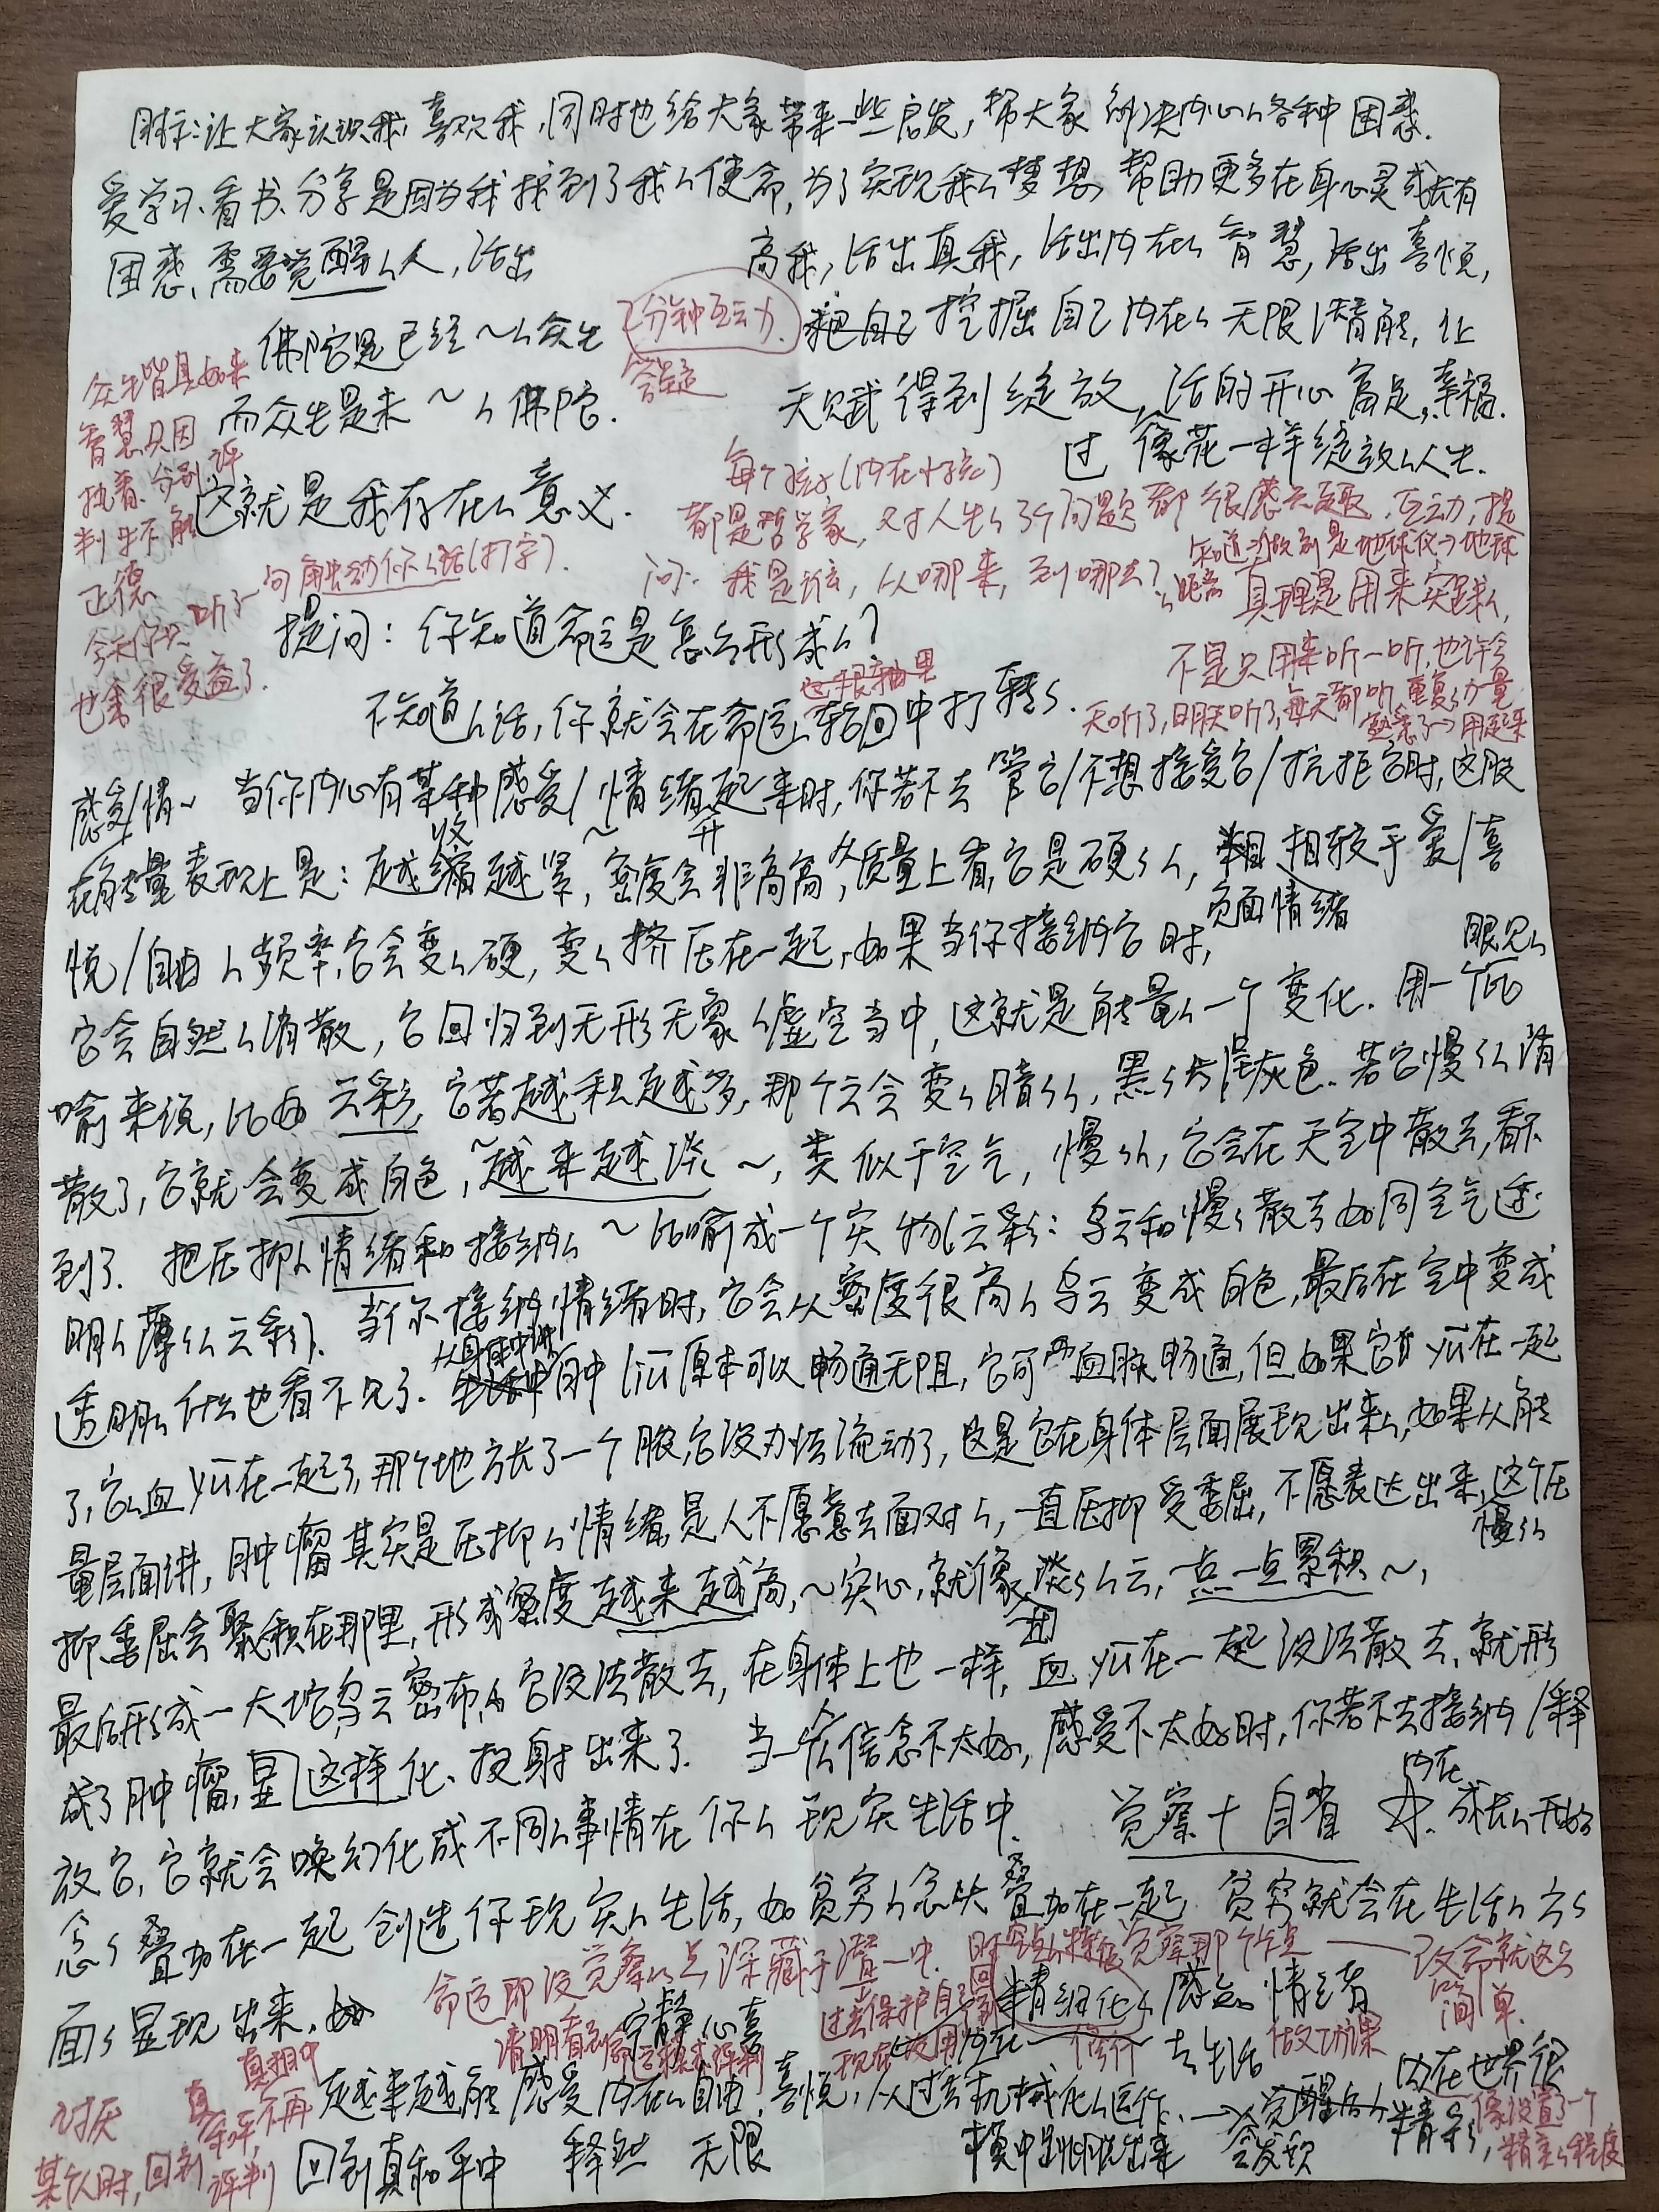 目标：让大家认识我，喜欢我，同时也给大家带来一些启发，帮大家解决内心的各种困惑．
爱学习、看书、分享是因为我找到了我的使命，为了实现我的梦想，帮助更多在身心灵成长有
困惑、需要觉醒的人，活出
高我，活出真我，活出内在的智慧，活出喜悦，
佛陀是已经～的众生
2分钟互动
答疑
挖掘自己内在的无限潜能，让
众生皆具如来
智慧只因
执着、分别、评
判
而众生是未～的佛陀．
天赋得到绽放，活的开心富足，幸福．
过像花一样绽放的人生．
这就是我存在的意义．
每个孩子（内在小孩）
都是哲学家，对人生的3个问题都很感兴趣，互动，提
问：我是谁，从哪来，到哪去？
知道
地球仪→地球
的距离
真理是用来实践的，
不是只用来听一听，也许今
天听了，明天听了，每天都听，重复的力量
熟悉了→用起来
听了一句触动你的话（打字）．
也会很受益了．
提问：你知道命运是怎么形成的？
不知道的话，你就会在命运的轮回中打转．
感受/情～ 当你内心有某种感受/情绪起来时，你若不去管它/不想接受它/抗拒它时，这股
在能量表现上是：越缩越紧，密度会非常高，从质量上看，它是硬的，相较于爱/喜
收
负面情绪
悦/自由的频率，它会变的硬，变的挤压在一起，如果当你接纳它时，
眼见的
它会自然的消散，它回归到无形无象的虚空当中，这就是能量的一个变化．用一个比
喻来说，比如云彩，它若越积越多，那个云会变的暗的，黑的与深灰色．若它慢慢消
散了，它就会变成白色，～越来越淡～，类似于空气，慢慢的，它会在天空中散去，看不
到了．把压抑的情绪和接纳的～比喻成一个实物（云彩：乌云和慢慢散去如同空气透
明的薄的云彩）．当你接纳情绪时，它会从密度很高的乌云变成白色，最后在空中变成
透明的什么也看不见了．
原本可以畅通无阻，它可血脉畅通，但如果它yu在一起
了，它的血yu在一起了，那个地方长了一个脓，它没办法流动了，这是它在身体层面展现出来的，如果从能
量层面讲，肿瘤其实是压抑的情绪，是人不愿意去面对的，一直压抑受委屈，不愿表达出来，这个压
慢慢
抑、委屈会聚积在那里，形成密度越来越高，～实心，就像淡淡的云，一点一点累积～，
最后形成一大坨乌云密布的，它没法散去，在身体上也一样，血yu在一起没法散去，就形
成了肿瘤，显这样化、投射出来了．当一个信念不太好，感受不太好时，你若不去接纳/释
放它，它就会幻化成不同的事情在你的现实生活中．
觉察＋自省
内在
成长的开始
念的叠加在一起创造你现实的生活，如贫穷的念头叠加在一起，贫穷就会在生活的方方
面面显现出来．
命运即没觉察的点，深藏于潜～中．
觉察那个点——改命就这么
简单．
宁静 心喜
清明
过去保护自己
现在
精细化的感知情绪
去生活
做功课
真相中
越来越能感受内在的自由、喜悦，从过去机械化的运作→觉醒后的内在世界很
模式中跳脱出来
会发现
精彩，
像设置了一个
精美的程度
讨厌
某个人时，回到
真
不再
评判
回到真和平中 释然 无限